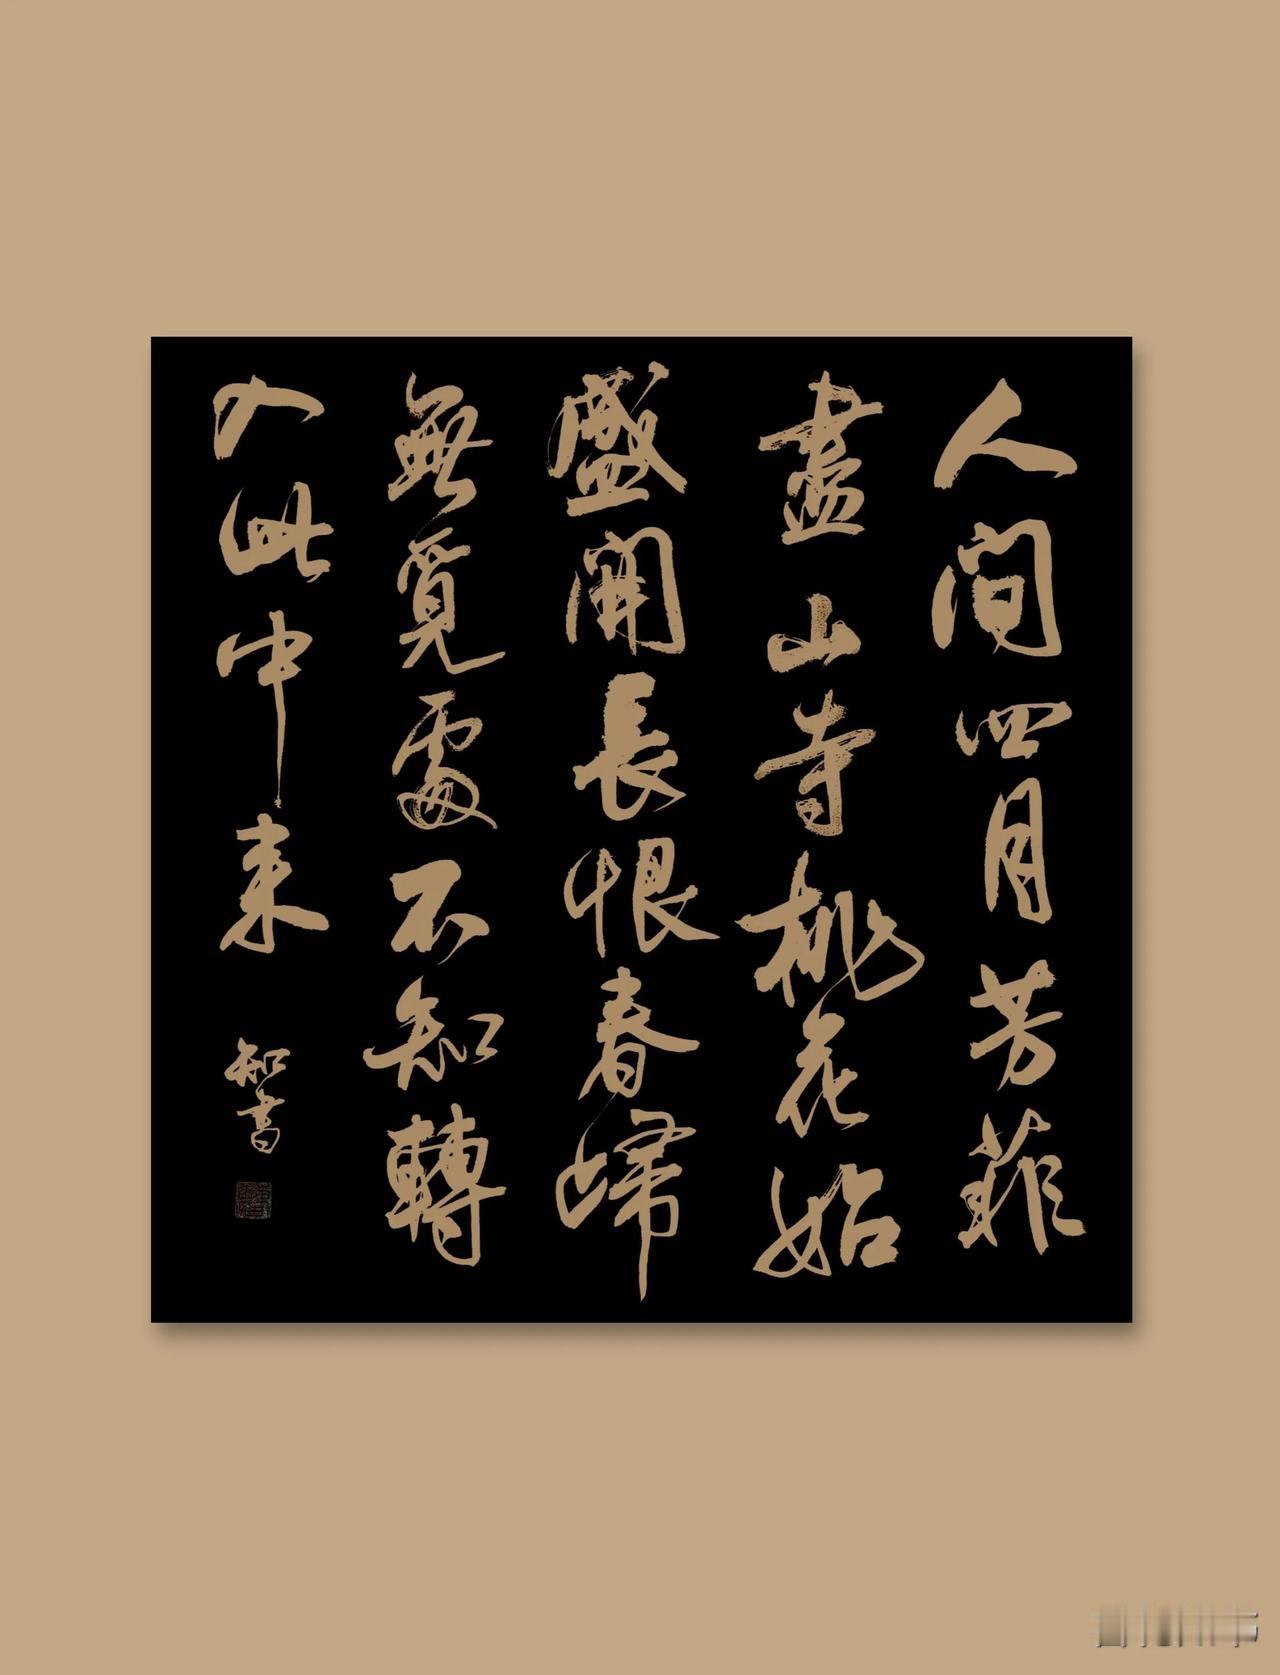 人间四月芳菲
盡山寺桃花始
盛開長恨春歸
無覓處不知轉
入此中来
知書